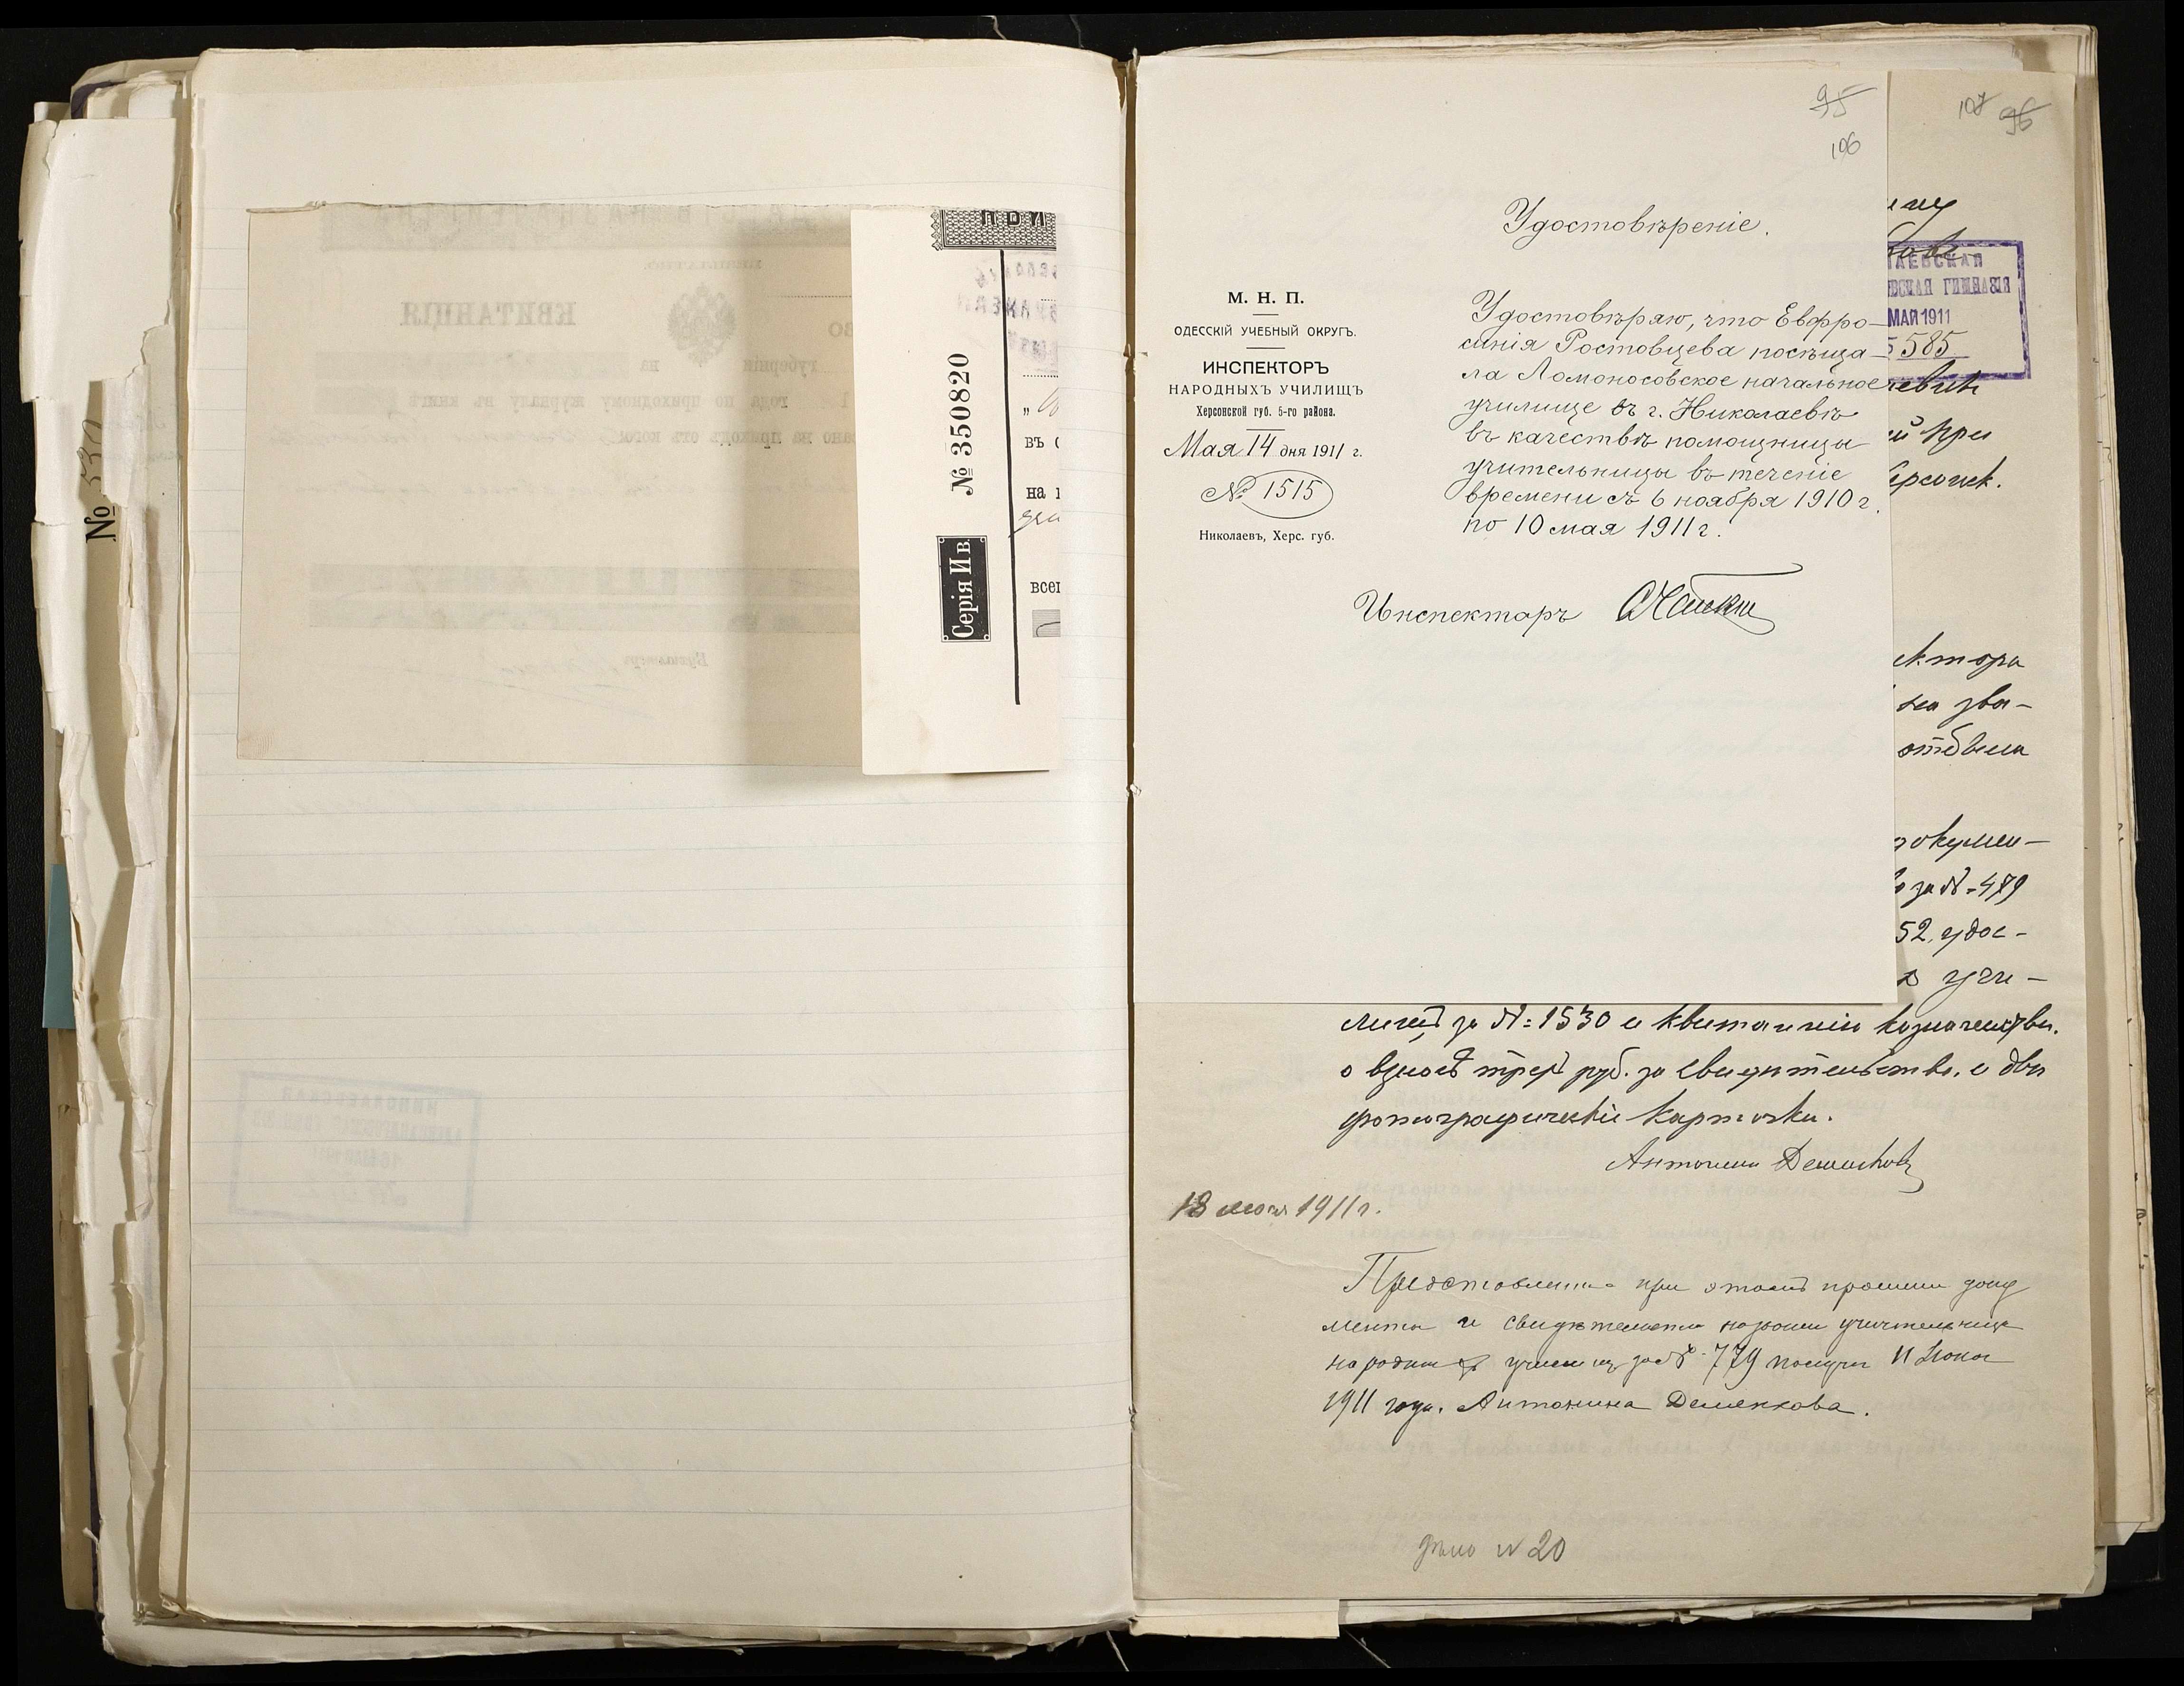 № 530
КВИТАНЦІЯ
губерніи на
года по приходному журналу въ книгѣ
Бухгалтеръ
№ 350820
Серія И в.
ПРИ
въ
на
всег
95
106
Удостовѣреніе.
М. Н. П.
ОДЕССКІЙ УЧЕБНЫЙ ОКРУГЪ.
ИНСПЕКТОРЪ
НАРОДНЫХЪ УЧИЛИЩЪ
Херсонской губ. 5-го района.
Мая 14 дня 1911 г.
№ 1515
Николаевъ, Херс. губ.
Удостовѣряю, что Евфро-
синія Ростовцева посѣща-
ла Ломоносовское начальное
училище въ г. Николаевѣ
въ качествѣ помощницы
учительницы въ теченіе
времени съ 6 ноября 1910 г.
по 10 мая 1911 г.
Инспекторъ
107 96
ЛАЕВСКАЯ
ЕВСКАЯ ГИМНАЗІЯ
МАЯ 1911
585
й при
ектора
на зва-
докумен-
за № 479
52, удос-
учи-
лищъ за № 1530 и квитанцію казначейства
о взносѣ трехъ руб. за свидѣтельство и двѣ
фотографическіе карточки.
Антонина Деменкова
18 мая 1911 г.
Представленные при этомъ прошеніи доку
менты и свидѣтельство на званіе учительницы
народныхъ училищъ за № 779 получила 11 Іюня
1911 года. Антонина Деменкова.
дѣло № 20